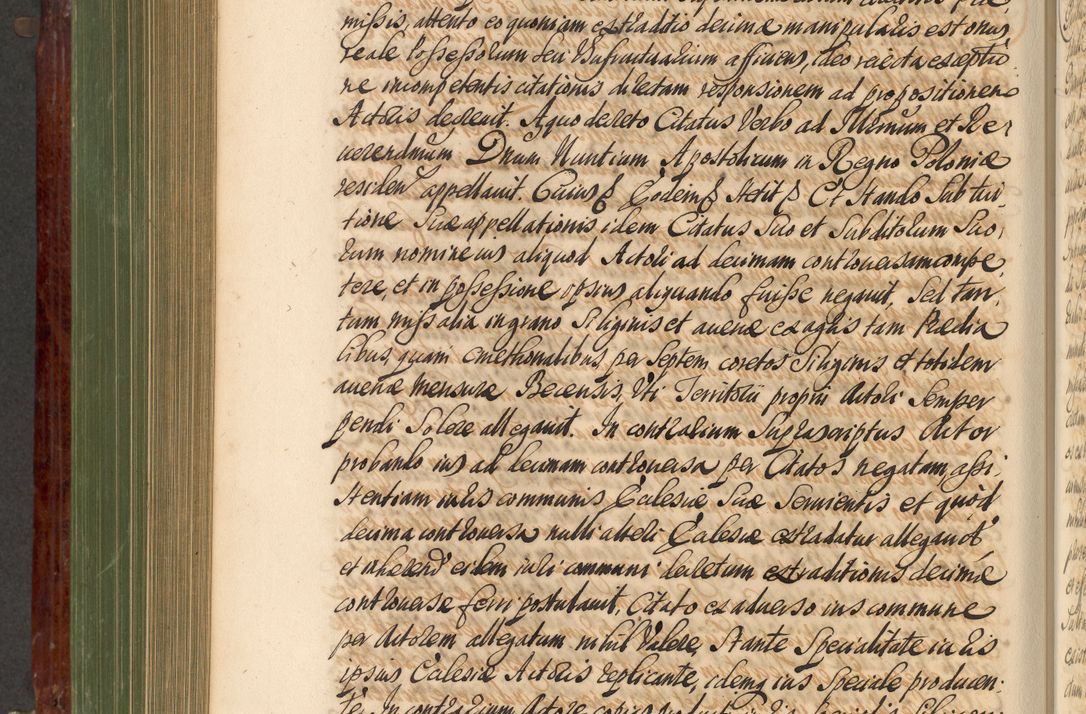 missis, attento eo quoniam extraditio decimæ manipularis est onus
reale Possessorum seu Usufructuarium afficiens, ideo rejecta exceptio,
ne incompetentis citationis directam responsionem ad propositionem
Actoris decrevit. A quo decreto Citatus Verbo ad Illrmum et Re,
verendmum Dnum Nuntium Apostolicum in Regno Poloniæ
residen appellavit. Cuius Eodem stetit Et Stando sub tui,
tione suæ appellationis idem Citatus suo et subditorum suo,
rum nomine ius aliquod Actori ad decimam controversam compe,
tere, et in possessione ipsius aliquando fuisse negavit, sed tan,
tum missalia in grano siliginis et avenæ ex agris tam Prædia
libus, quam cmethonalibus, per septem coretos siliginis et totidem
avenæ mensuræ Becensis, Uti Territorii proprii Actori semper
pendi solere allegavit. In contrarium suprascriptus Actor
probando ius ad decimam controversam per Citatos negatam, assi,
stentiam iuris communis Ecclesiæ suæ servientis et quod
decima controversa nulli alteri Ecclesiæ extradatur allegavit
et inhærend eidem iuri communi decretum extraditionis decimæ
controversæ ferri postulavit, Citato ex adverso ius commune
per Actorem allegatum nihil Valere, stante specialitate iuris
ipsius Ecclesiæ Actoris replicante, idemq ius speciale producen,
te. In contrarium Actore